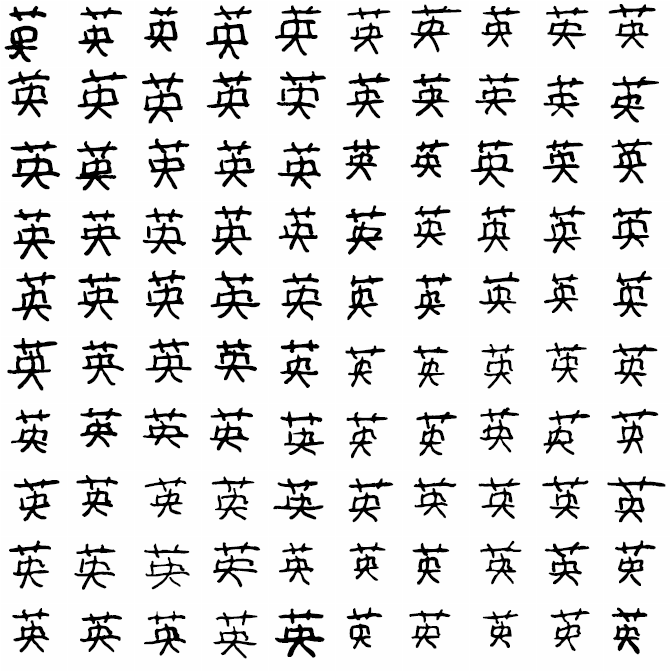 英英英英英英英英英英
英英英英英英英英英英
英英英英英英英英英英
英英英英英英英英英英
英英英英英英英英英英
英英英英英英英英英英
英英英英英英英英英英
英英英英英英英英英英
英英英英英英英英英英
英英英英英英英英英英